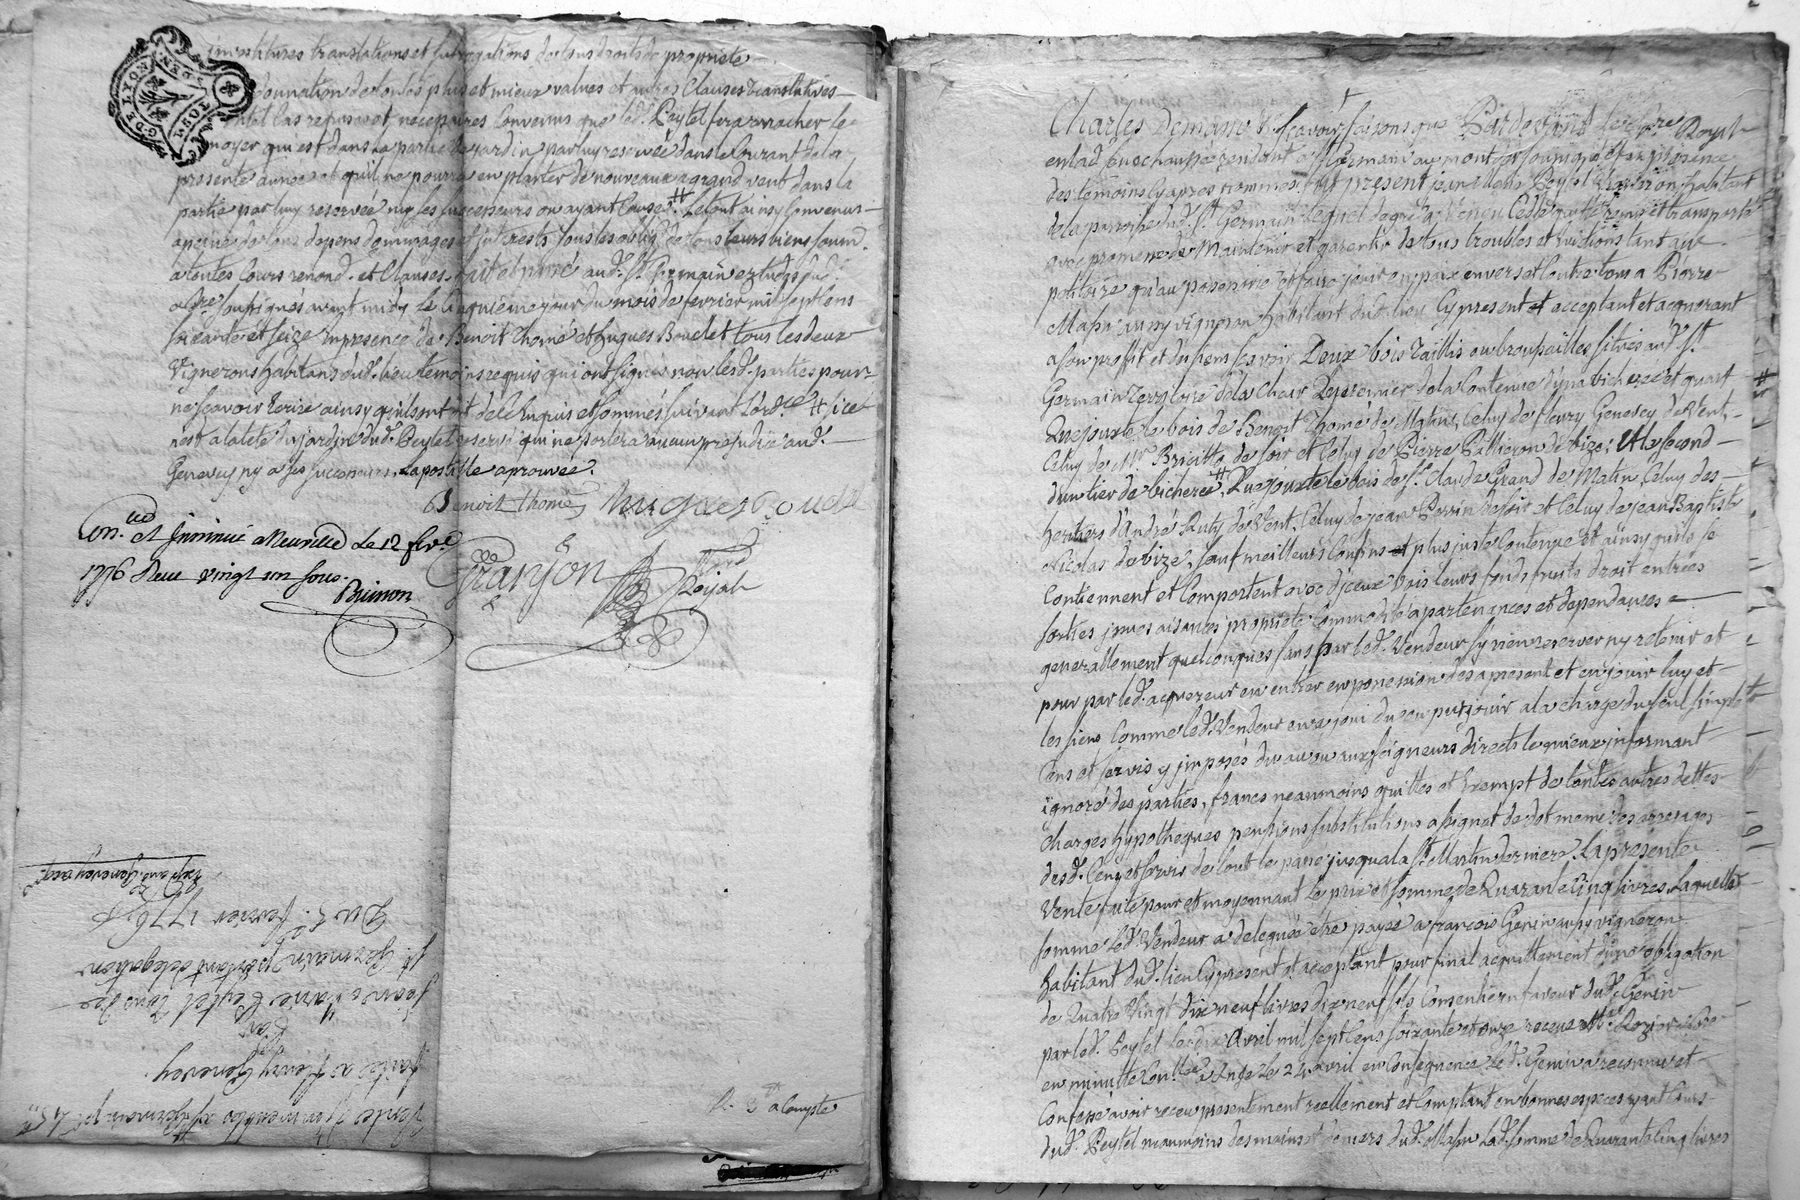 G. DE LYON
investitures translations et subrogations de tous droits de propriete
donnation de toutes plus et mieux values et autres Clauses translatives
a tel cas requises et necessaires Convenus que led. Peytel fera arracher le
noyer qui est dans la partie de jardin par luy reservée dans le Courant de la
presente année et qu'il ne pourra en planter de nouveaux a grand vent dans la
partie par luy reservée ny ses successeurs ou ayant Cause. # Le tout ainsy Convenu
a peine de tous depens dommages et interests sous les oblig. de tous leurs biens soumd.
a toutes Cours renond. et Clauses. fait et passé aud. St Germain
soussignés avant midy Le Cinquième jour du mois de fevrier mil sept Cens
soixante et seize En presence de Benoit Thomé et hugues Boudet tous les deux
Vignerons habitans dud. lieu temoins requis qui ont signés non lesd. parties pour
ne scavoir Ecrire ainsy qu'ils ont dit de ce Enquis et sommés suivant l'ord.ce # si ce
n'est a la teté du jardin dud. Peytel reservé qui ne portera aucun prejudice aud.
Genevey ny a ses successeurs, La postille aprouvée.
Benoit thomé hugues Boudet
Con.lé et Insinué a Neuville Le 12 fev.er
1776 Receu vingt un sous.
Brimon
Vente d'immeubles a St Germain p.t 45 ll
Passée a fleury Genevey
Par
Jean Marie Peytel Tous de
St Germain portant delegation
Du 5.e fevrier 1776
Exp. aud. Genevey acq.r
R. 3 ll a Compte
Charles Demano N. scavoir faisons que Pardevant le No.re Royal
en lad. senechaussée residant a St Germain au mont d'or soussigné et en presence
des temoins Cy apres nommés, fut present jean Marie Peytel Vigneron habitant
de la parroisse dud. St Germain Lequel de gré a Vendu Cede quitté remis et transporté
avec promesse de Maintenir et garentir de tous troubles et evictions tant au
petitoire qu'au possessoire et faire jouir en paix envers et Contre tous a Pierre
Masson aussy vigneron habitant dud. lieu Cy present et acceptant et acquerant
a son profit et du siens scavoir Deux bois Taillis ou broussailles situés aud. St
Germain Territoire de la Chaux de la Contenue d'une bicherée et quart
Que jouxte le bois de Benoit Thomé de Matin, Celuy de fleury Genevey de Vent,
Celuy de M.r Brigitte de soir et Celuy de Pierre Pallieron de bize; Et Le second
d'un tier de bicherée, # Que jouxte le bois de s.r Claude Grand de Matin Celuy des
heritiers d'André Ruty de Vent, Celuy de jean Perrin de soir et Celuy de jean Baptiste
Nicolas de bize, sauf meilleurs Confins et plus juste Contenue et ainsy qu'ils se
Contiennent et Comportent avec d'jceux bois leurs fonds fruits droit entrées
sorties jours aisances proprieté Commodité apartenances et dependances
generallement quelconques sans par led. Vendeur s'y rien reserver ny retenir et
pour par led. acquereur en entrer en possession des a present et en jouir luy et
les siens Comme led. Vendeur en a joui du ou pu jouir a la charge du seul simple
Cens et servis y jmposés du au ou aux seigneurs directs le quieux informant
ignoré des parties, francs neanmoins quittes et Exempt de toutes autres dettes
charges hypotheques pensions substitutions assignat de dot meme des arrerages
desd. Cens et servis de tout le passé jusqu'a la St Martin derniere. La presente
Vente faite pour et moyennant Le prix et somme de Quarante Cinq livres Laquelle
somme led. Vendeur a deleguée etre payée a francois Genin aussy vigneron
habitant dud. lieu Cy present et acceptant pour final acquittement d'une obligation
de Quatre Vingt dix neuf livres dix neuf sols Consentie en faveur dud. Genin
par led. Peytel Le dix Avril mil sept Cens soixante et onze receue M.e Rozier No.re
en minutte Con.llée a Anse Le 24 avril en Consequence Led. Genin a reconnu et
Confessé avoir receu presentement reellement et Comptant en bonnes especes ayant Cours
dud. Peytel neanmoins des mains et deniers dud. Masson Lad. somme de Quarante Cinq livres